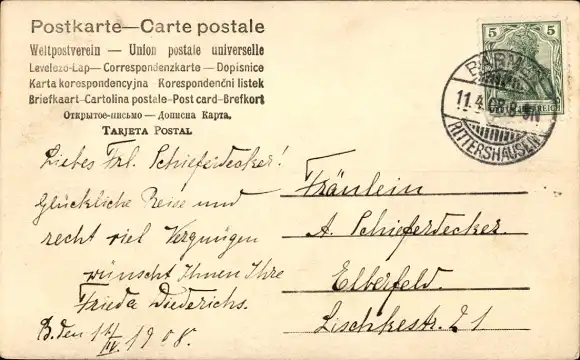 Postkarte—Carte postale
Weltpostverein — Union postale universelle
Levelezö-Lap—Correspondenzkarte—Dopisnice
Karta korespondencyjna - Korespondenční listek
Briefkaart-Cartolina postale-Post card-Brefkort
Открытое-письмо — Дописна Карта.
TARJETA POSTAL
5 5
BARMEN
11.4.08.8-9N
RITTERSHAUSEN
REICH
Liebes Frl. Schieferdecker!
Glückliche Reise und
recht viel Vergnügen
wünscht Ihnen Ihre
Frieda Diederichs.
B. den 11./IV. 1908.
Fräulein
A. Schieferdecker.
Elberfeld.
Lischkestr. 21